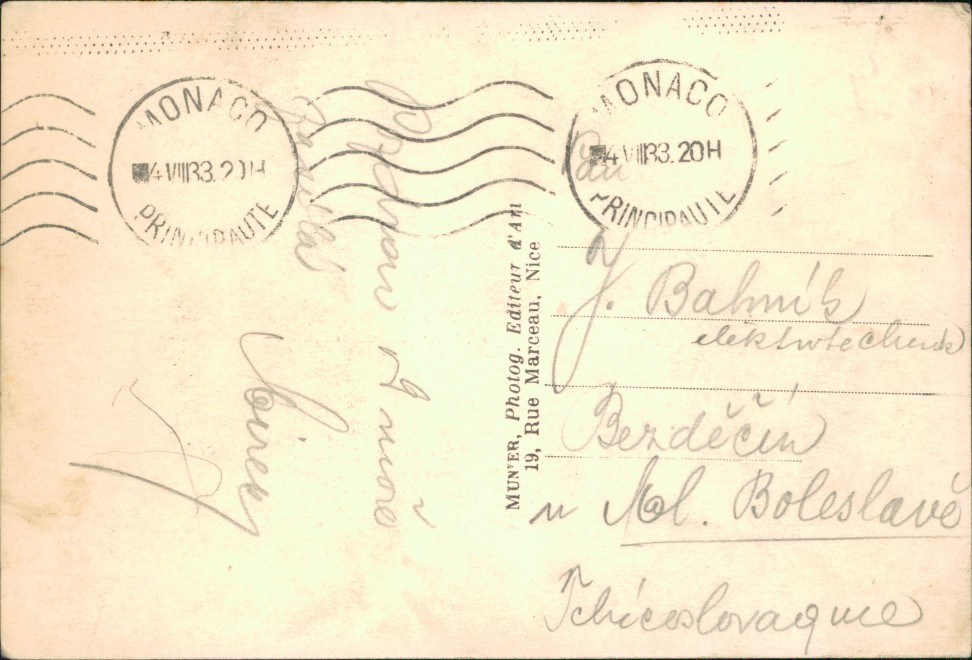 MONACO
4 VIII 33. 20H
PRINCIPAUTE
MONACO
4 VIII 33. 20H
PRINCIPAUTE
Pozdrav od moře
MUNIER, Photog. Editeur d'Art
19, Rue Marceau, Nice
Pan
J. Bahník
elektrotechnik
Bezděčín
u Ml. Boleslavě
Tchécoslovaquie